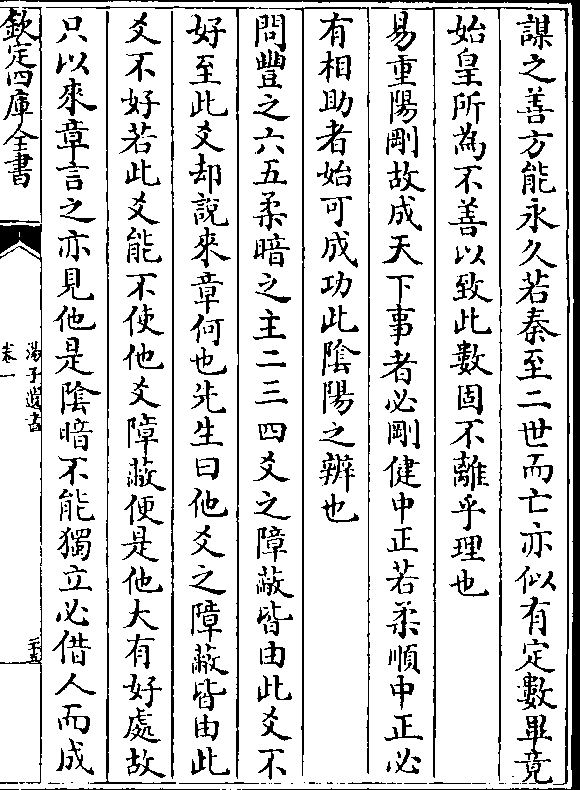 謀之善方能永久若秦至二世而亡亦似有定數畢竟
始皇所為不善以致此數固不離乎理也
易重陽剛故成天下事者必剛健中正若柔順中正必
有相助者始可成功此陰陽之辨也
問豐之六五柔暗之主二三四爻之障蔽皆由此爻不
好至此爻却說來章何也先生曰他爻之障蔽皆由此
爻不好若此爻能不使他爻障蔽便是他大有好處故
只以來章言之亦見他是陰暗不能獨立必借人而成
欽定四庫全書
湯子遺書
卷一